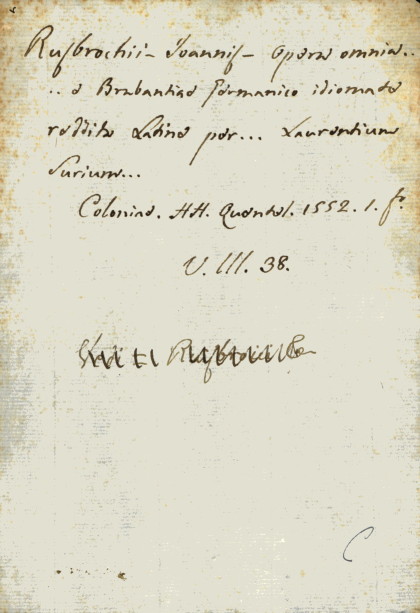 Rusbrochii - Joannis - opera omnia..
.. e Brabantiae Germanico idiomate
reddita Latine per... Laurentium
Surium...
Coloniae. HH. Quentel. 1552. 1. fo.
V. III. 38.
C